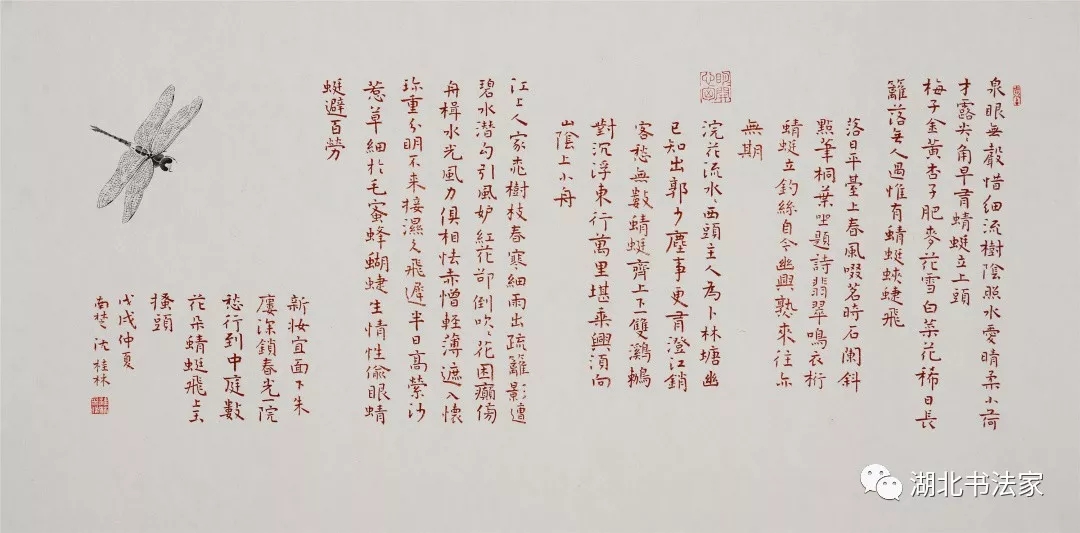 泉眼無聲惜細流樹陰照水愛晴柔小荷
才露尖〻角早有蜻蜓立上頭
梅子金黃杏子肥麥花雪白菜花稀日長
籬落無人過惟有蜻蜓蛺蝶飛
落日平臺上春風啜茗時石闌斜
點筆桐葉坐題詩翡翠鳴衣桁
蜻蜓立釣絲自今幽興熟來往亦
無期
浣花流水〻西頭主人為卜林塘幽
已知出郭少塵事更有澄江銷
客愁無數蜻蜓齊上下一雙鸂鶒
對沉浮東行萬里堪乘興須向
山陰上小舟
江上人家桃樹枝春寒細雨出疏籬影遭
碧水潛勾引風妒紅花卻倒吹〻花困癲傍
舟楫水光風力俱相怯赤憎輕薄遮入懷
珍重分明不來接濕久飛遲半日高縈沙
惹草細於毛蜜蜂蝴蝶生情性偷眼蜻
蜓避百勞
新妝宜面下朱
樓深鎖春光一院
愁行到中庭數
花朵蜻蜓飛上玉
搔頭
戊戌仲夏
南楚沈桂林
湖北书法家